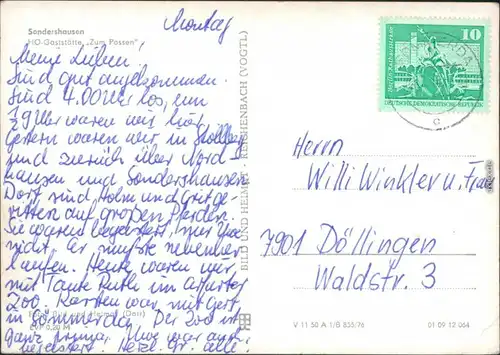 Sondershausen
HO-Gaststätte „Zum Possen"
Montag
Meine Lieben!
Sind gut angekommen.
Sind 4.00 Uhr los, um
Uhr waren wir hier.
Gestern waren wir in Stolberg
und zurück über Nord
hausen und Sondershausen
Dort sind Holm und Grit ge-
ritten auf großen Pferden.
Sie waren begeistert, nur
nicht. Er mußte nebenher
laufen. Heute waren wir
mit Tante Ruth im Erfurter
Zoo. Karsten war mit Gert
in Sömmerda. Der Zoo ist
ganz prima. Uwe war auch
begeistert. Herzl. Gr. alle!
Foto: Bild und Heimat
EVP 0,20 M
BILD UND HEIMAT · REICHENBACH (VOGTL)
V 11 50 A 1/B 855/76
01 09 12 064
10
Berlin, Rathausstraße
DEUTSCHE DEMOKRATISCHE REPUBLIK
Herrn
Willi Winkler u. Frau
7901 Döllingen
Waldstr. 3